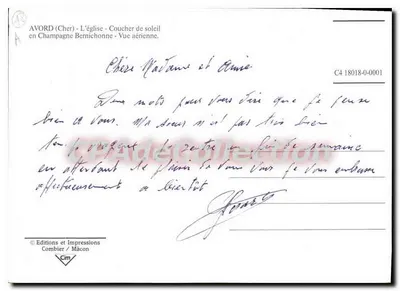 AVORD (Cher) - L'église - Coucher de soleil
en Champagne Berrichonne - Vue aérienne.
C4 18018-0-0001
Chère Madame et Amie
Deux mots pour vous dire que je pense
bien à vous. n'est pas très bien
fin de semaine
en attendant le plaisir de vous voir je vous embrasse
affectueusement a bientôt
CPADeCollection
© Editions et Impressions
Combier / Mâcon
Cim